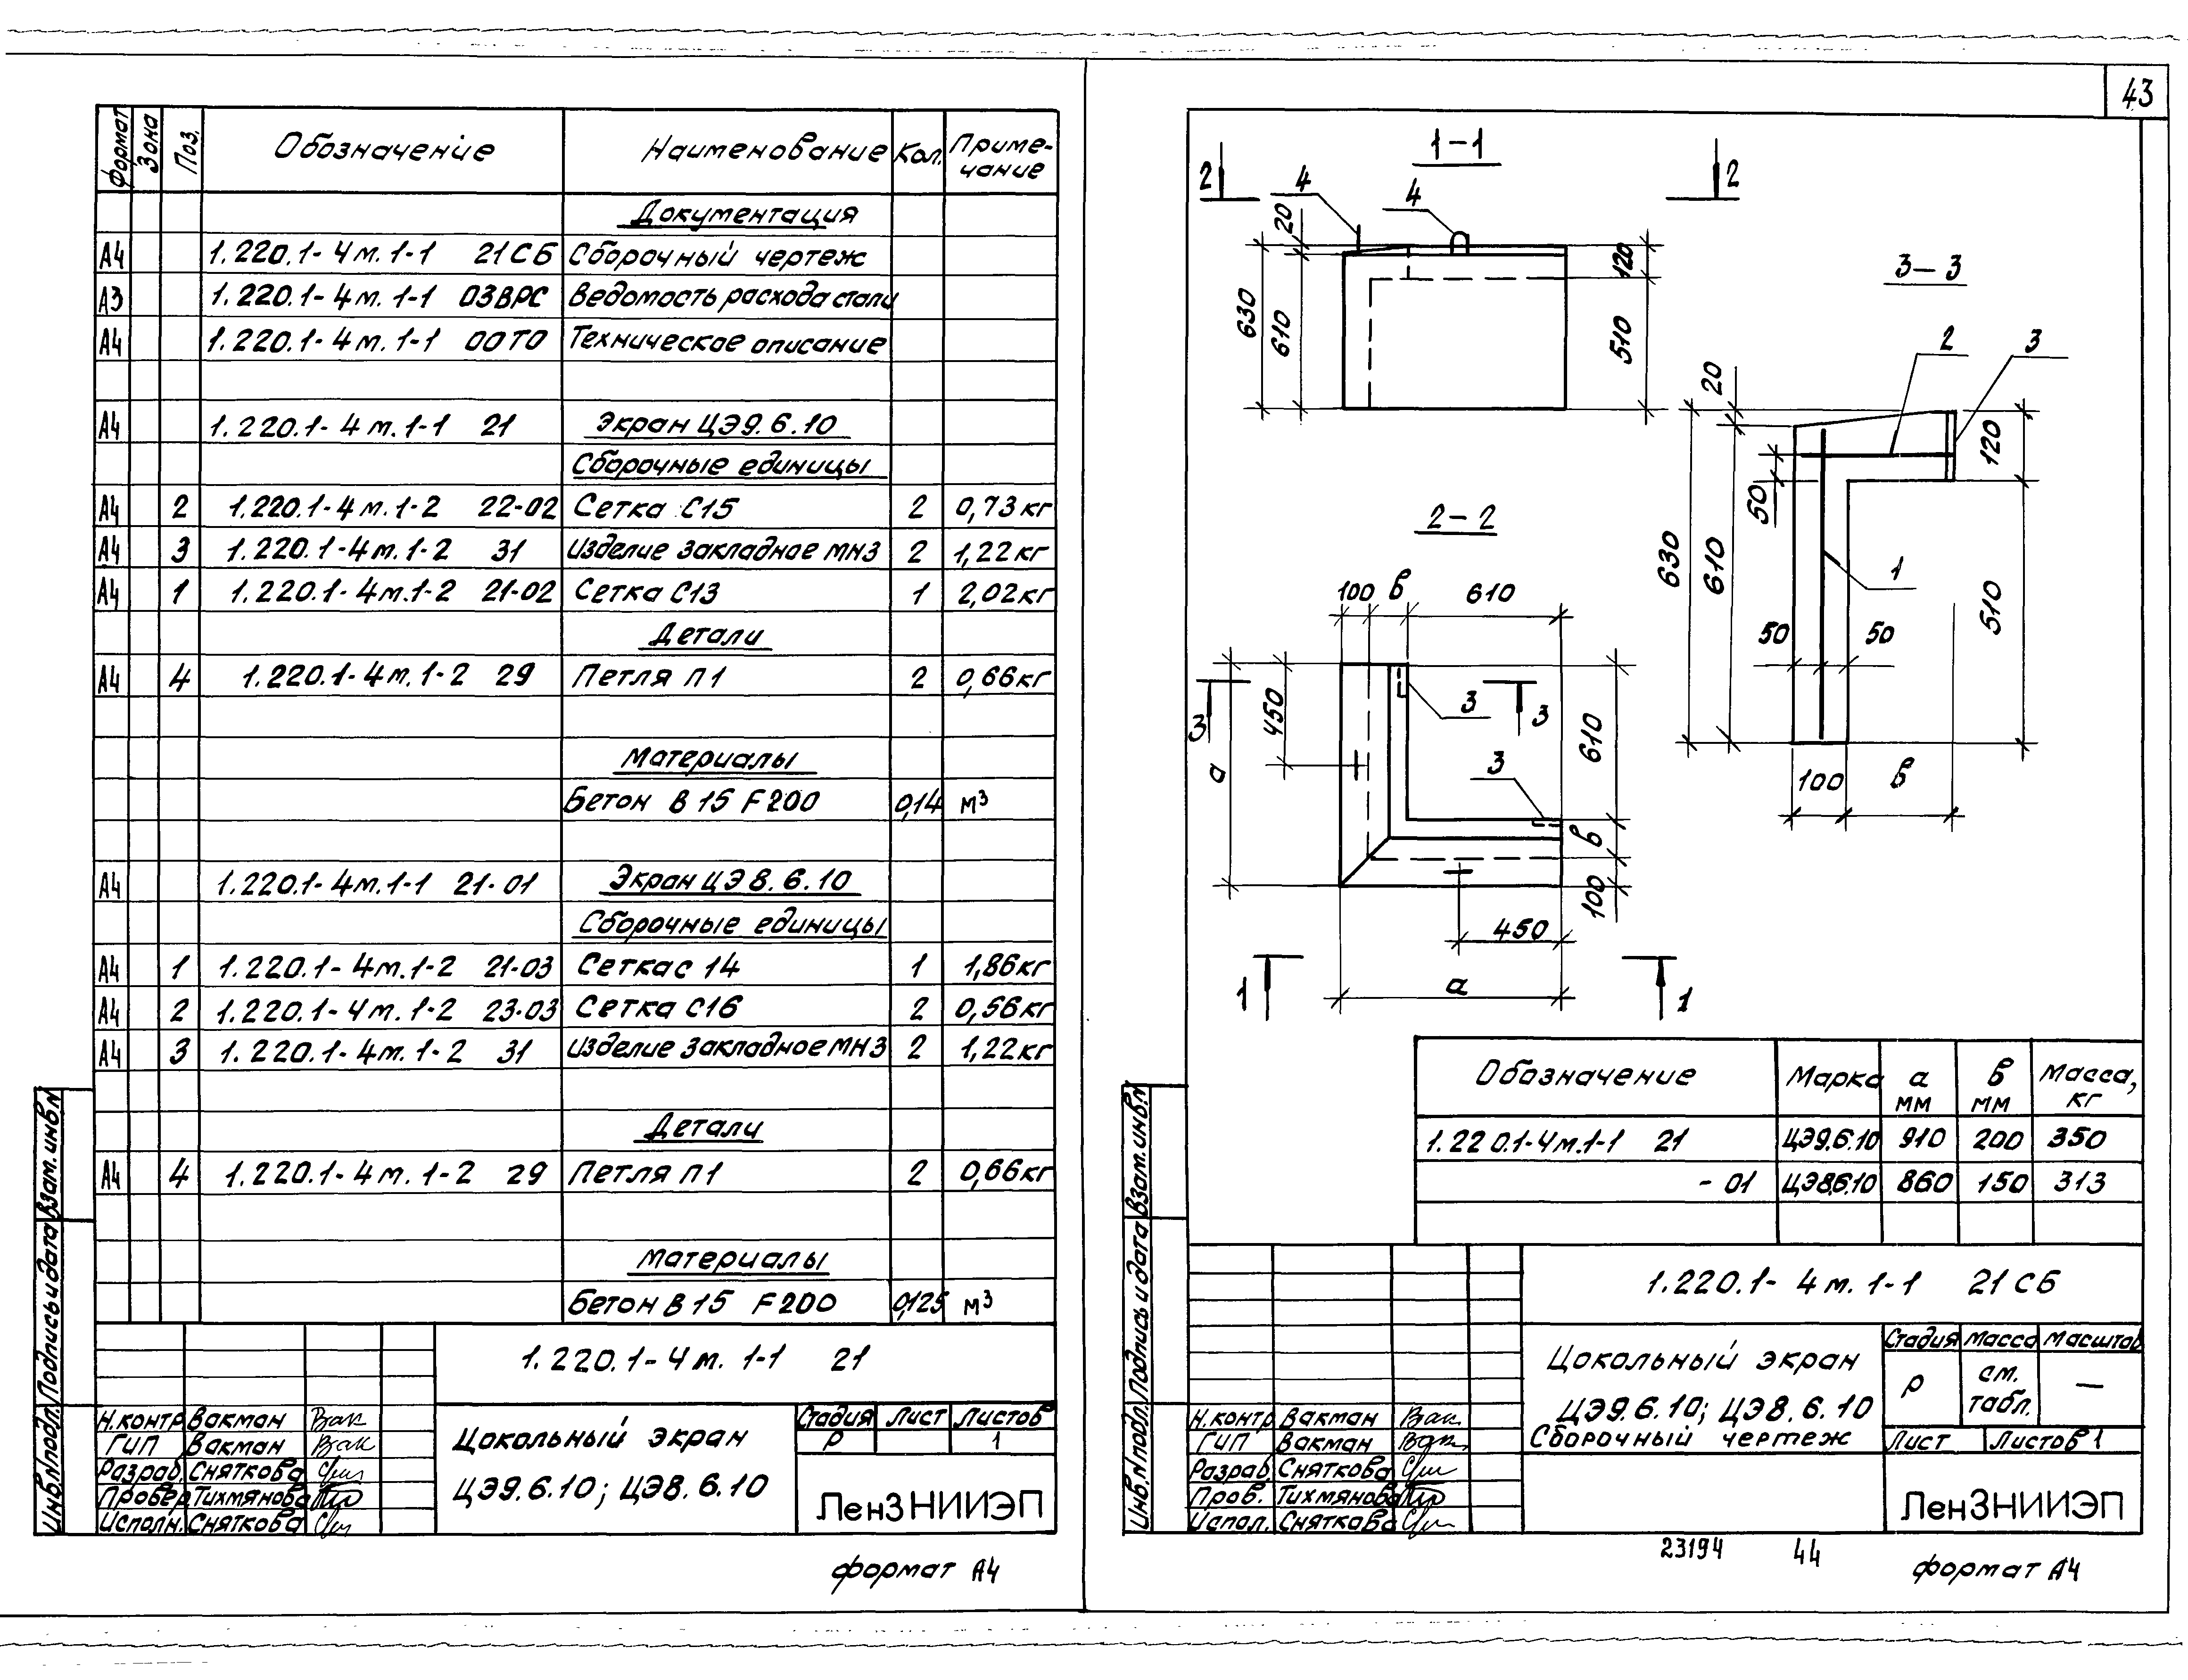 43
Формат Зона Поз. Обозначение Наименование Кол. Приме-
чание
Документация
А4 1.220.1-4м.1-1 21СБ Сборочный чертеж
А3 1.220.1-4м.1-1 03ВРС Ведомость расхода стали
А4 1.220.1-4м.1-1 00ТО Техническое описание
А4 1.220.1-4м.1-1 21 Экран ЦЭ9.6.10
Сборочные единицы
А4 2 1.220.1-4м.1-2 22-02 Сетка С15 2 0,73кг
А4 3 1.220.1-4м.1-2 31 Изделие закладное МН3 2 1,22кг
А4 1 1.220.1-4м.1-2 21-02 Сетка С13 1 2,02кг
Детали
А4 4 1.220.1-4м.1-2 29 Петля П1 2 0,66кг
Материалы
Бетон В15 F200 0,14 м³
А4 1.220.1-4м.1-1 21-01 Экран ЦЭ8.6.10
Сборочные единицы
А4 1 1.220.1-4м.1-2 21-03 Сетка С14 1 1,86кг
А4 2 1.220.1-4м.1-2 23-03 Сетка С16 2 0,56кг
А4 3 1.220.1-4м.1-2 31 Изделие закладное МН3 2 1,22кг
Детали
А4 4 1.220.1-4м.1-2 29 Петля П1 2 0,66кг
Материалы
Бетон В15 F200 0,125 м³
1.220.1-4м.1-1 21
Н.контр. Вакман Вак
ГИП Вакман Вак
Разраб. Сняткова
Провер. Тихмянова
Исполн. Сняткова
Цокольный экран
ЦЭ9.6.10; ЦЭ8.6.10
Стадия Лист Листов
Р 1
ЛенЗНИИЭП
Инв.N подл. Подпись и дата Взам.инв.N
формат А4
1-1
2 2
4 4
20
630 610
120
510
3-3
2 3
20
120
50
630 610
1
510
50 50
100 в
2-2
100 в 610
3 3 3
450
а
610
3
в
100
450
а
1 1
Обозначение Марка а
мм в
мм Масса,
кг
1.220.1-4м.1-1 21 ЦЭ9.6.10 910 200 350
- 01 ЦЭ8.6.10 860 150 313
1.220.1-4м.1-1 21СБ
Цокольный экран
ЦЭ9.6.10; ЦЭ8.6.10
Сборочный чертеж
Стадия Масса Масштаб
Р см.
табл. —
Лист Листов 1
Н.контр. Вакман Вак
ГИП Вакман Вак
Разраб. Сняткова
Пров. Тихмянова
Испол. Сняткова
ЛенЗНИИЭП
Инв.N подл. Подпись и дата Взам.инв.N
23194 44
формат А4